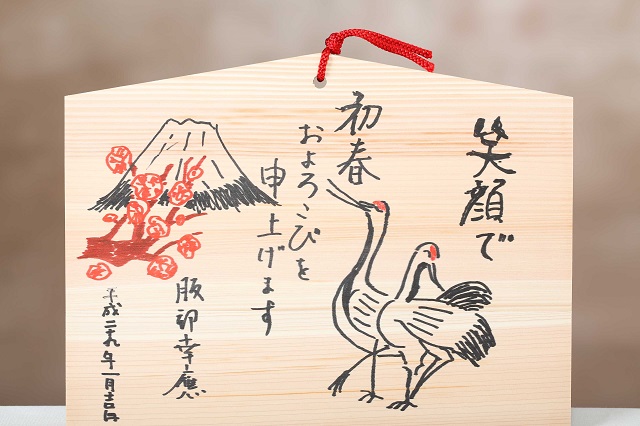 笑顔で
初春
およろこびを
申上げます
服部幸應
平成二九年一月吉日